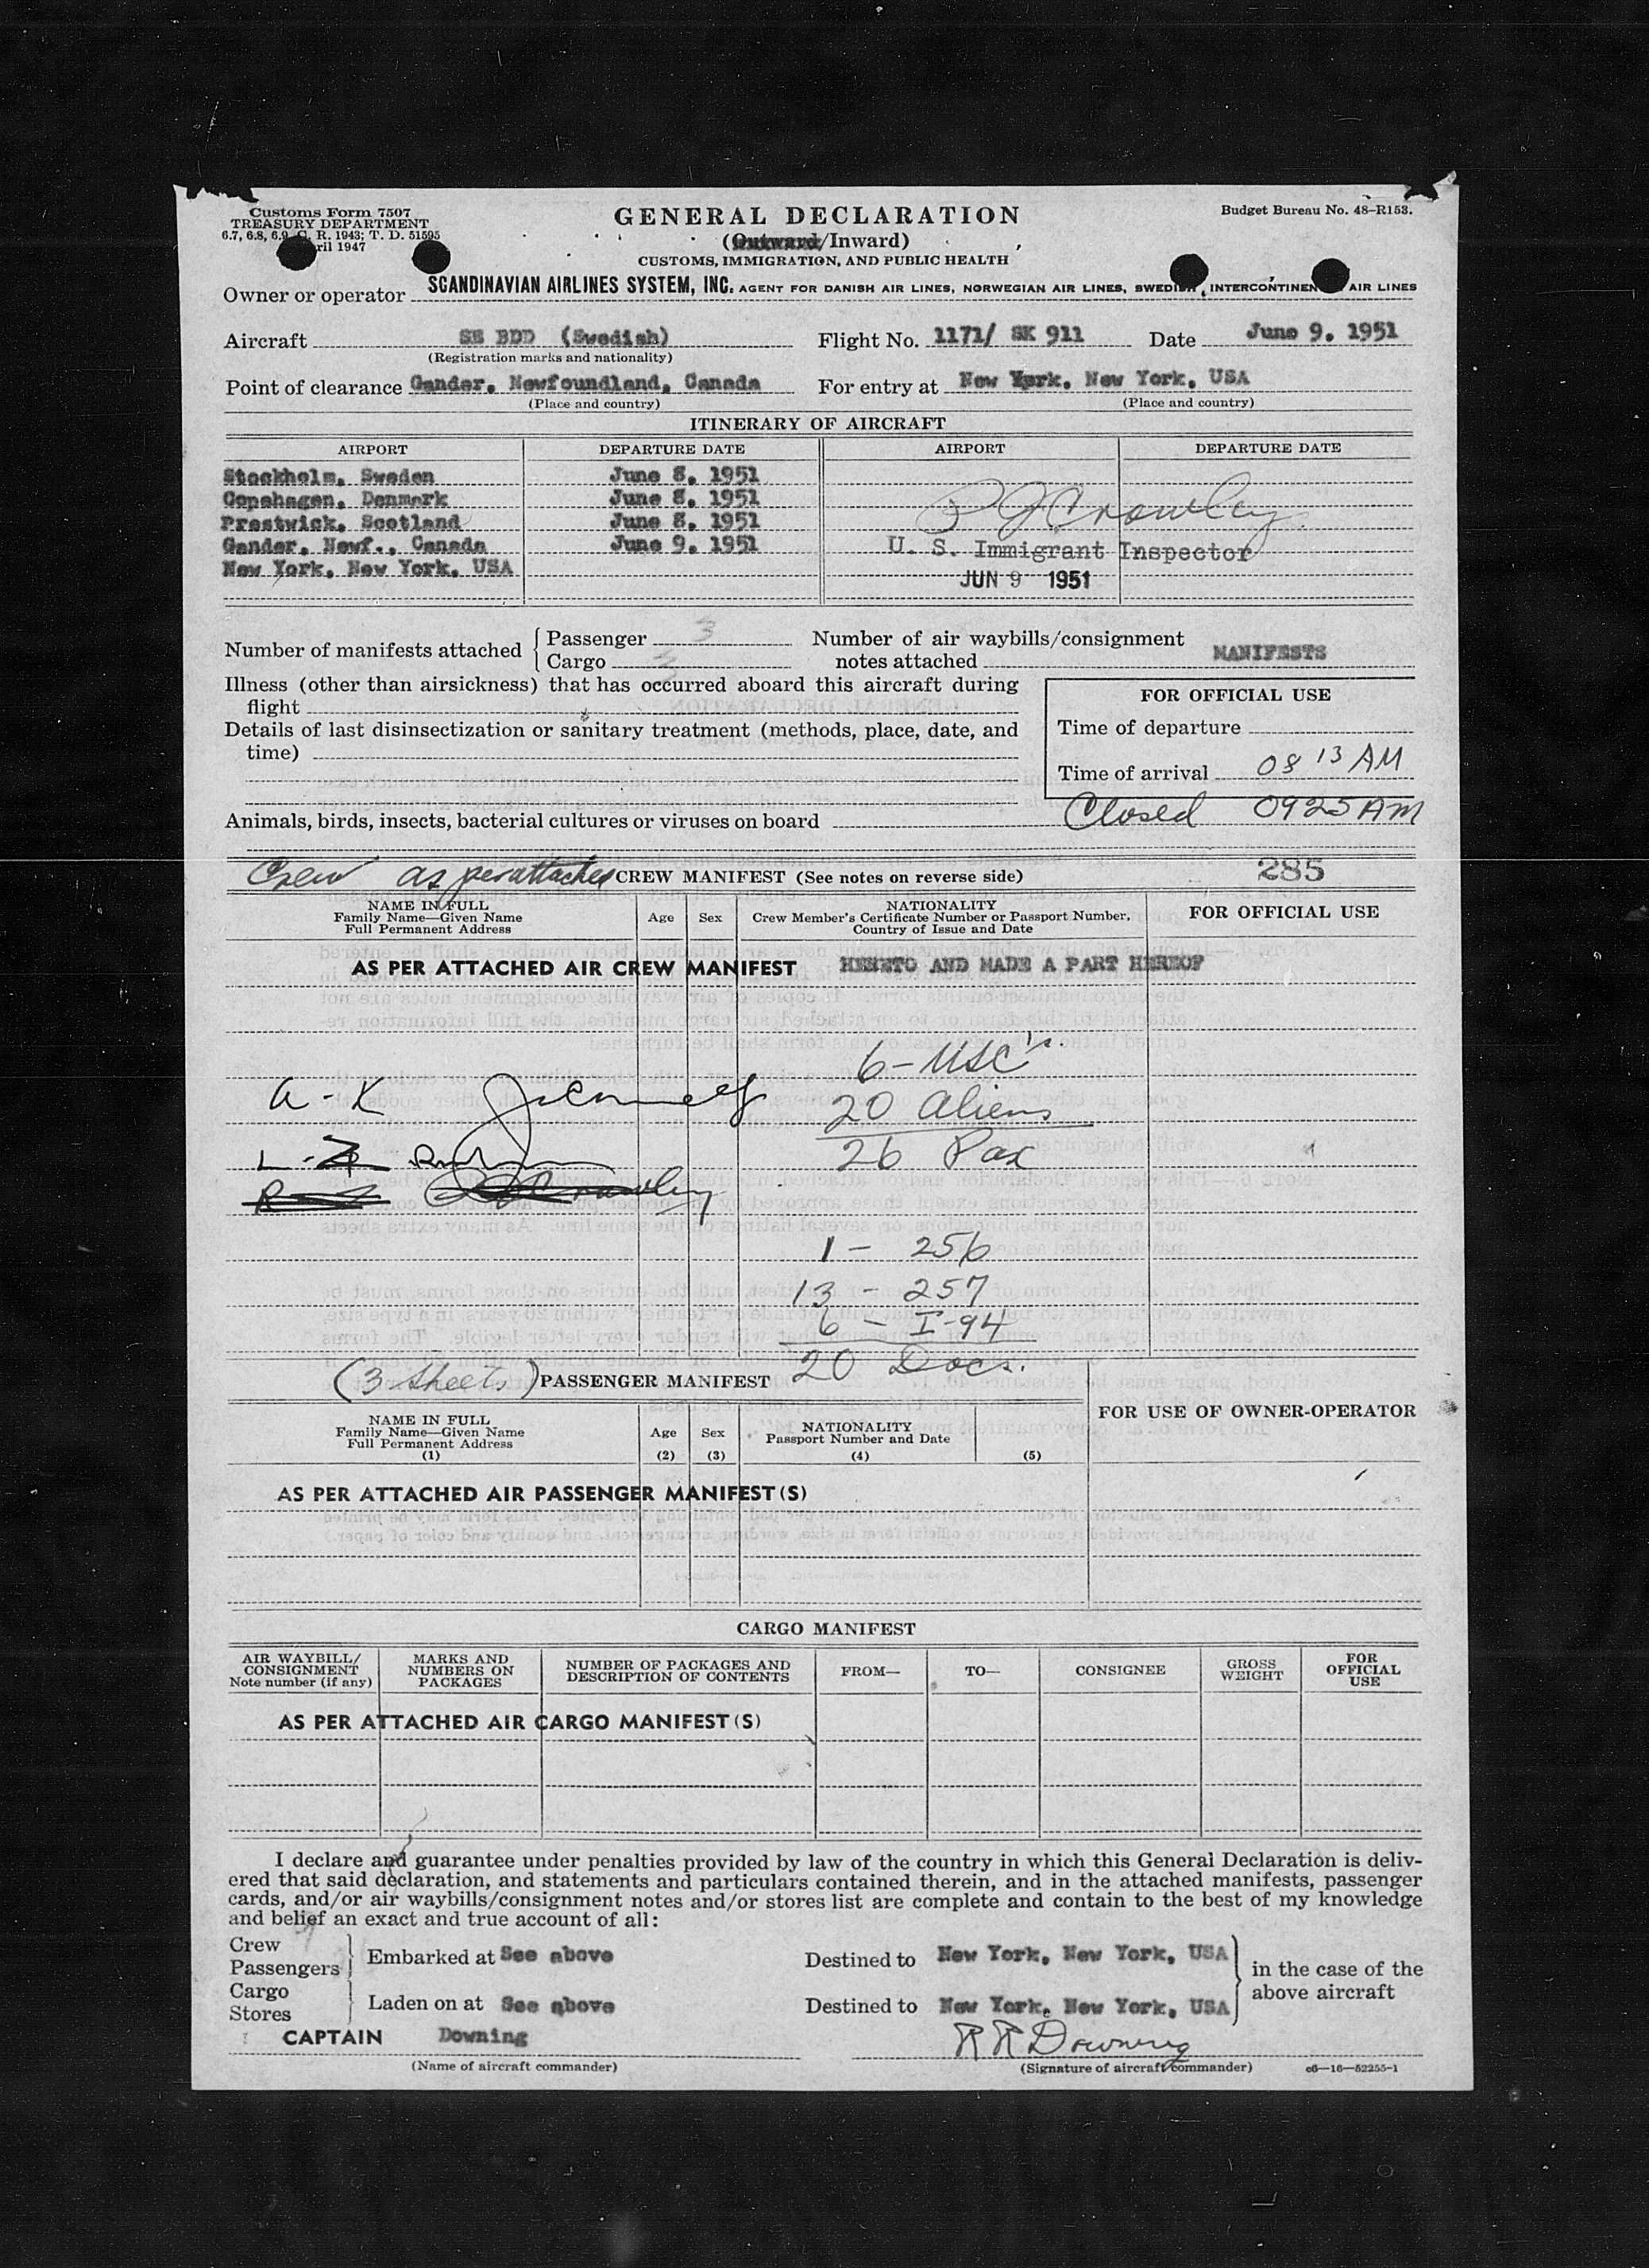 Customs Form 7507
TREASURY DEPARTMENT
6.7, 6.8, 6.9, C. R. 1943; T. D. 51595
ril 1947
GENERAL DECLARATION
(Outward/Inward)
CUSTOMS, IMMIGRATION, AND PUBLIC HEALTH
Budget Bureau No. 48–R153.
Owner or operator SCANDINAVIAN AIRLINES SYSTEM, INC. AGENT FOR DANISH AIR LINES, NORWEGIAN AIR LINES, SWEDISH INTERCONTINEN AIR LINES
Aircraft SE BDD (Swedish) Flight No. 1171/ SK 911 Date June 9, 1951
(Registration marks and nationality)
Point of clearance Gander, Newfoundland, Canada For entry at New York, New York, USA
(Place and country) (Place and country)
ITINERARY OF AIRCRAFT
AIRPORT DEPARTURE DATE AIRPORT DEPARTURE DATE
Stockholm, Sweden June 8, 1951
Copehagen, Denmark June 8, 1951
Prestwick, Scotland June 8, 1951
P J Crowley
Gander, Newf., Canada June 9, 1951 U. S. Immigrant Inspector
New York, New York, USA JUN 9 1951
Number of manifests attached { Passenger 3 Number of air waybills/consignment
Cargo notes attached MANIFESTS
Illness (other than airsickness) that has occurred aboard this aircraft during
flight
FOR OFFICIAL USE
Details of last disinsectization or sanitary treatment (methods, place, date, and
time)
Time of departure
Time of arrival 08 13 AM
Closed 0925 AM
Animals, birds, insects, bacterial cultures or viruses on board
Crew as per attached CREW MANIFEST (See notes on reverse side) 285
NAME IN FULL
Family Name—Given Name
Full Permanent Address
Age Sex
NATIONALITY
Crew Member's Certificate Number or Passport Number,
Country of Issue and Date
FOR OFFICIAL USE
AS PER ATTACHED AIR CREW MANIFEST HERETO AND MADE A PART HEREOF
6 - USC's.
A - K
20 Aliens
L - Z
26 Pax
1 - 256
13 - 257
6 - I-94
20 Docs.
(3 sheets) PASSENGER MANIFEST
NAME IN FULL
Family Name—Given Name
Full Permanent Address
(1)
Age
(2)
Sex
(3)
NATIONALITY
Passport Number and Date
(4) (5)
FOR USE OF OWNER-OPERATOR
AS PER ATTACHED AIR PASSENGER MANIFEST(S)
CARGO MANIFEST
AIR WAYBILL/
CONSIGNMENT
Note number (if any)
MARKS AND
NUMBERS ON
PACKAGES
NUMBER OF PACKAGES AND
DESCRIPTION OF CONTENTS
FROM— TO— CONSIGNEE
GROSS
WEIGHT
FOR
OFFICIAL
USE
AS PER ATTACHED AIR CARGO MANIFEST(S)
I declare and guarantee under penalties provided by law of the country in which this General Declaration is deliv-
ered that said declaration, and statements and particulars contained therein, and in the attached manifests, passenger
cards, and/or air waybills/consignment notes and/or stores list are complete and contain to the best of my knowledge
and belief an exact and true account of all:
Crew
Passengers } Embarked at See above Destined to New York, New York, USA
in the case of the
above aircraft
Cargo
Stores } Laden on at See above Destined to New York, New York, USA
CAPTAIN Downing R R Downing
(Name of aircraft commander) (Signature of aircraft commander) c6—16—52255-1